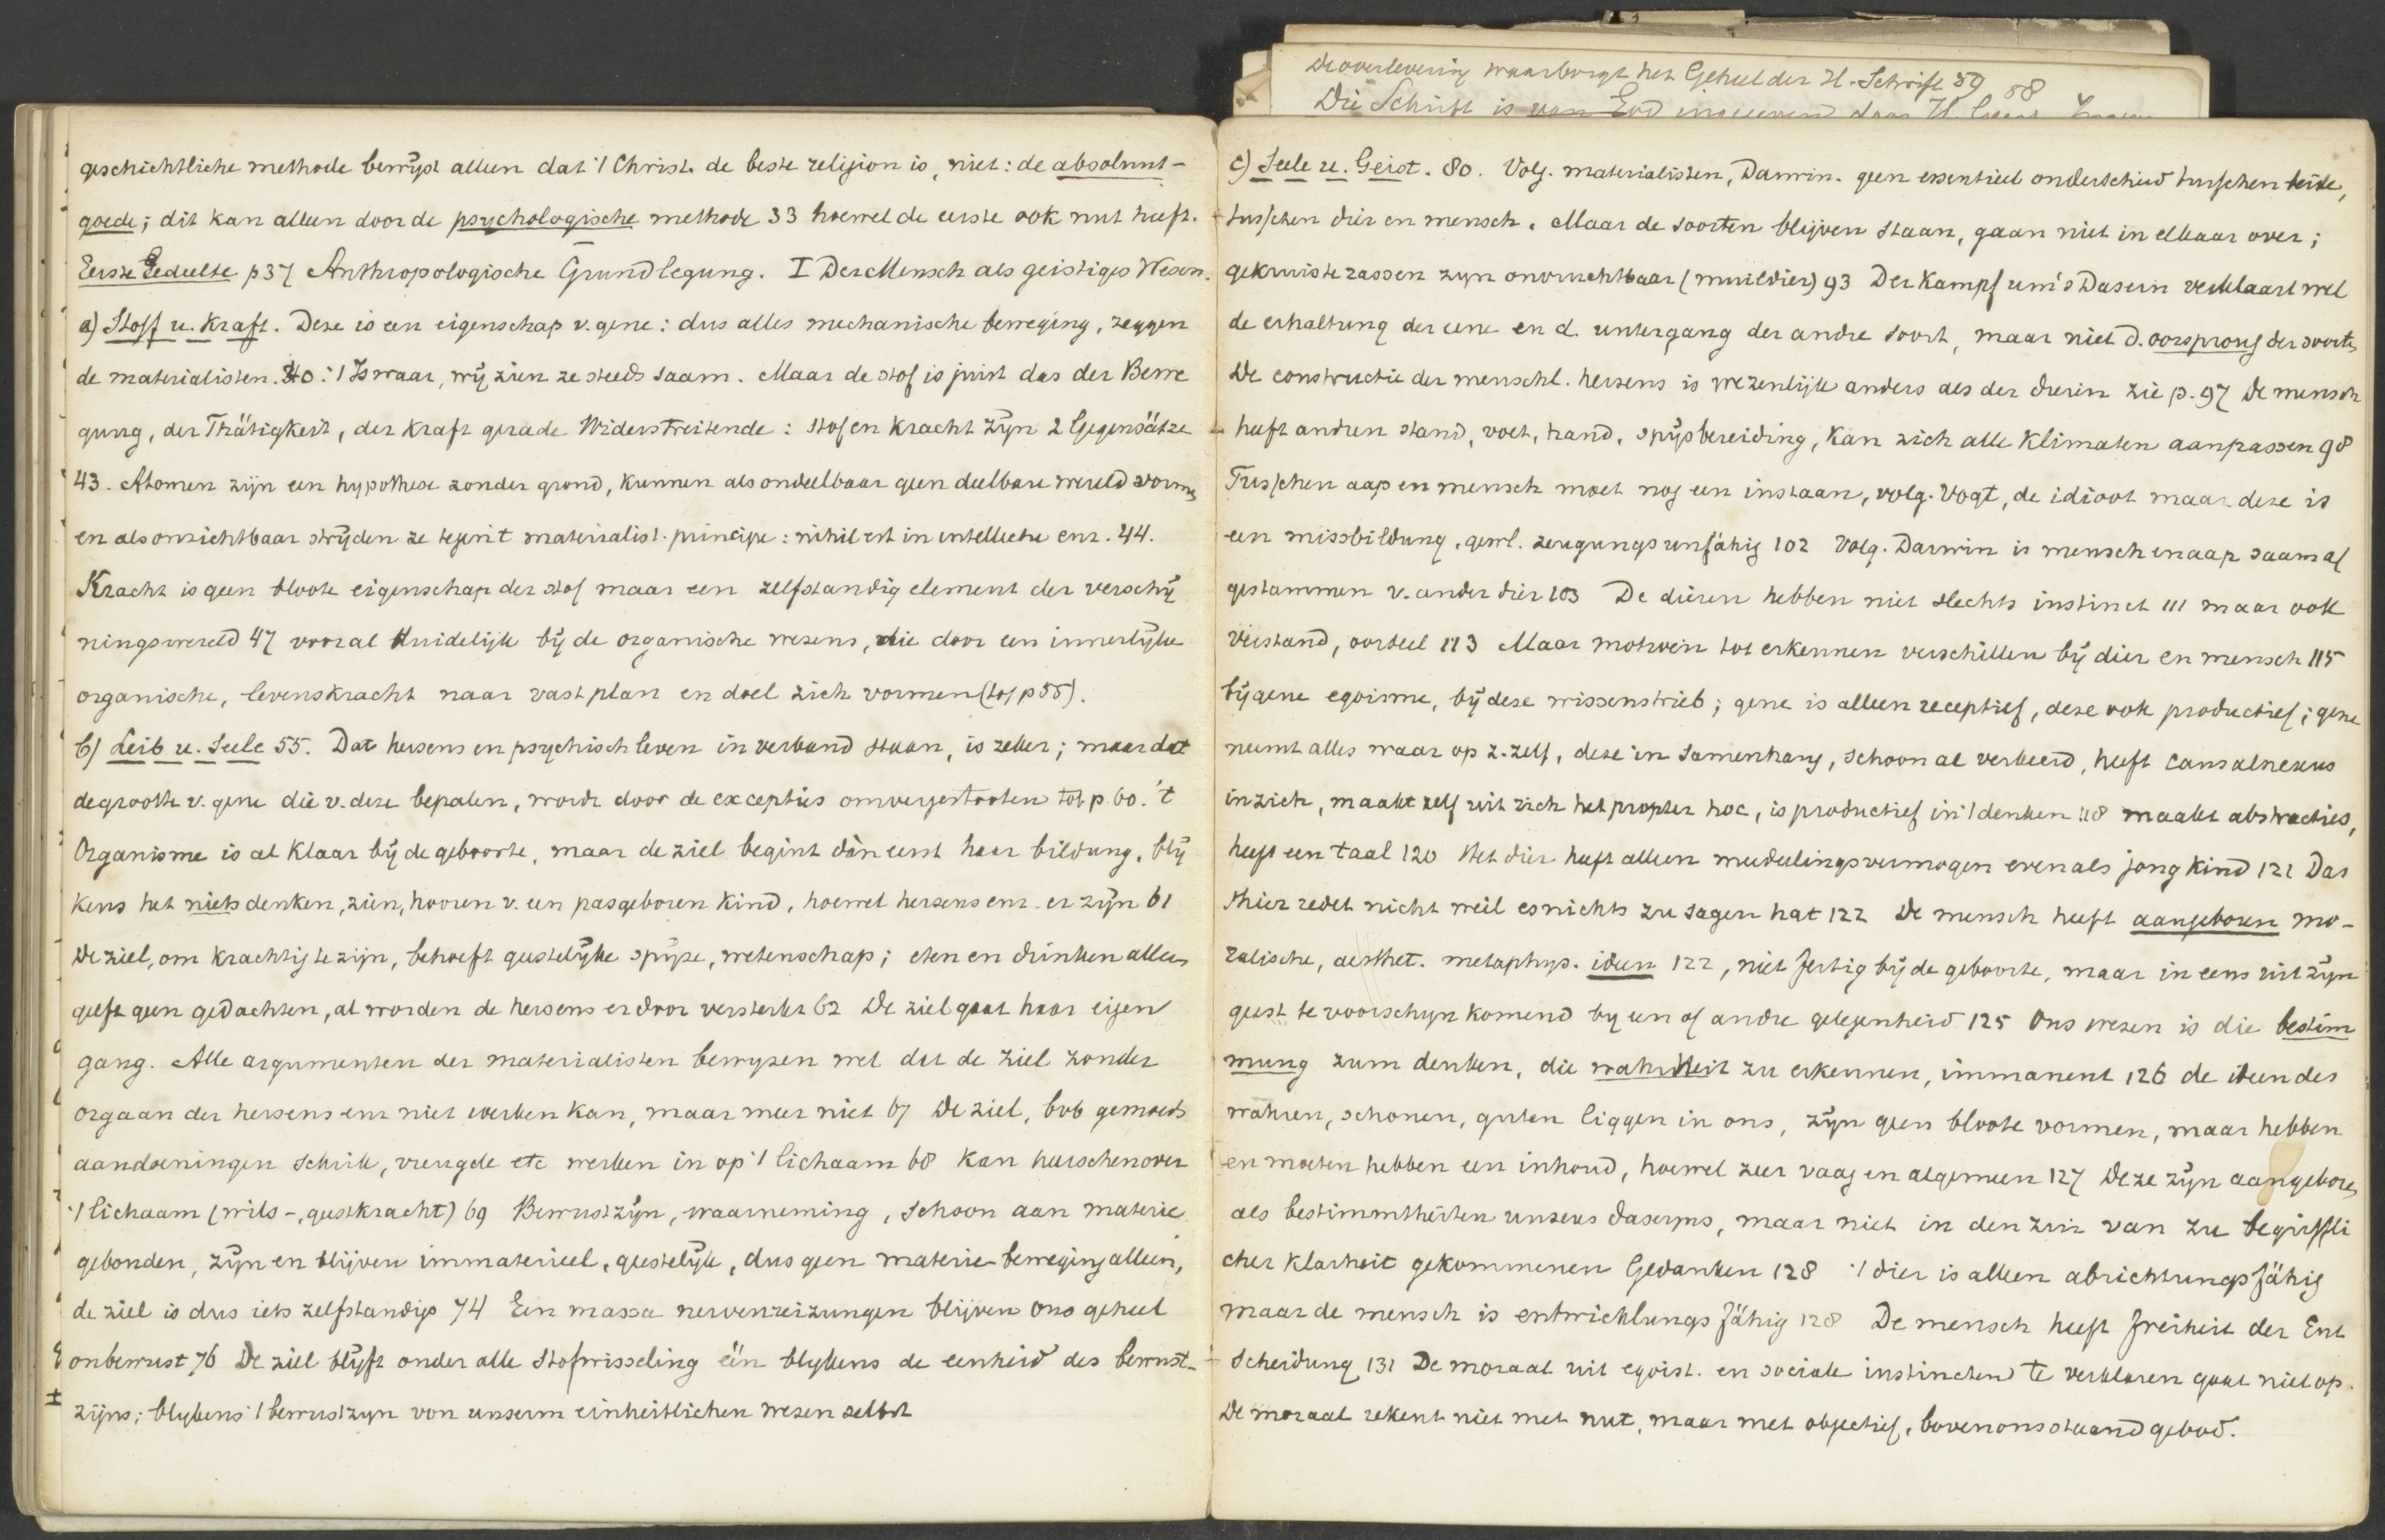 geschichtliche methode bewijst alleen dat 't Christ. de beste religion is, niet: de absoluut-
goede; dit kan alleen door de psychologische methode 33 hoewel de eerste ook nut heeft.
Eerste Gedeelte p37 Anthropologische Grundlegung. I Der Mensch als geistiges Wesen.
a) Stoff u. Kraft. Deze is een eigenschap v. gene: dus alles mechanische beweging, zeggen
de materialisten. 40: 't Is waar, wij zien ze steeds saam. Maar de stof is juist das der Bewe
gung, der Thätigkeit, der Kraft gerade Widerstreitende: stof en kracht zijn 2 Gegensätze
43. Atomen zijn een hypothese zonder grond, kunnen als ondeelbaar geen deelbare wereld vormen
en als onzichtbaar strijden ze tegen 't materialist. principe: nihil est in intellectu enz. 44.
Kracht is geen bloote eigenschap der stof maar een zelfstandig element der verschij
ningswereld 47 vooral duidelijk bij de organische wezens, die door een innerlijke
organische, levenskracht naar vast plan en doel zich vormen (tot p 55).
b) Leib u. Seele 55. Dat hersens en psychisch leven in verband staan, is zeker; maar dat
de grootte v. gene die v. deze bepalen, wordt door de excepties omvergestooten tot p. 60. 't
Organisme is al klaar bij de geboorte, maar de ziel begint dàn eerst haar bildung, blij
kens het niets denken, zien, hooren v. een pasgeboren kind, hoewel hersens enz. er zijn 61
De ziel, om krachtig te zijn, behoeft geestelijke spijze, wetenschap; eten en drinken alleen
geeft geen gedachten, al worden de hersens er door versterkt 62 De ziel gaat haar eigen
gang. Alle argumenten der materialisten bewyzen wel dat de ziel zonder
orgaan der hersens enz niet werken kan, maar meer niet 67 De ziel, bvb gemoeds
aandoeningen schrik, vreugde etc werken in op 't lichaam 68 kan heerschen over
't lichaam (wils-, geestkracht) 69 Bewustzijn, waarneming, schoon aan materie
gebonden, zijn en blijven immaterieel, geestelijk, dus geen materie-beweging alleen,
de ziel is dus iets zelfstandigs 74 Een massa nervenreizungen blijven ons geheel
onbewust 76 De ziel blijft onder alle stofwisseling één blykens de eenheid des bewust-
zijns; blykens 't bewustzyn von unserm einheitlichen wesen selbst
De overlevering waarborgt het Geheel der H. Schrift 59 58
Die Schrift is van God
c) Seele u. Geist. 80. Volg. materialisten, Darwin. geen essentieel onderscheid tusschen beide,
tusschen dier en mensch. Maar de soorten blijven staan, gaan niet in elkaar over;
gekruiste rassen zyn onvruchtbaar (muildier) 93 Der Kampf um's Dasein verklaart wel
de erhaltung der eene en d. untergang der andre soort, maar niet d. oorsprong der soorten
De constructie der menschl. hersens is wezenlijk anders als der dieren zie p. 97 De mensch
heeft andren stand, voet, hand, spijsbereiding, kan zich alle klimaten aanpassen 98
Tusschen aap en mensch moet nog een instaan, volg. Vogt, de idioot maar deze is
een missbildung, gewl. zeugungsunfähig 102 Volg. Darwin is mensch en aap saam af
gestammen v. ander dier 103 De dieren hebben niet slechts instinct 111 maar ook
verstand, oordeel 113 Maar motieven tot erkennen verschillen bij dier en mensch 115
bij gene egoisme, bij deze wissenstrieb; gene is alleen receptief, deze ook productief; gene
neemt alles waar op z. zelf, deze in samenhang, schoon al verkeerd, heeft causalnexus
in zich, maakt zelf uit zich het propter hoc, is productief in 't denken 118 maakt abstracties,
heeft een taal 120 Het dier heeft alleen mededeelingsvermogen evenals jong kind 121 Das
Thier redet nicht weil es nichts zu sagen hat 122 De mensch heeft aangeboren mo-
ralische, aesthet. metaphys. ideen 122, niet fertig bij de geboorte, maar in eens uit zijn
geest te voorschyn komend by een of andre gelegenheid 125 Ons wezen is die bestim
mung zum denken, die wahrheit zu erkennen, immanent 126 de ideen des
wahren, schonen, guten liggen in ons, zijn geen bloote vormen, maar hebben
en moeten hebben een inhoud, hoewel zeer vaag en algemeen 127 Deze zijn aangeboren
als bestimmtheiten unseres daseyns, maar niet in den zin van zu begriffli
cher Klarheit gekommenen Gedanken 128 't dier is alleen abrichtungsfähig
maar de mensch is entwicklungsfähig 128 De mensch heeft freiheit der Ent
scheidung 131 De moraal uit egoist. en sociale instincten te verklaren gaat niet op.
De moraal rekent niet met nut, maar met objectief, boven ons staand gebod.